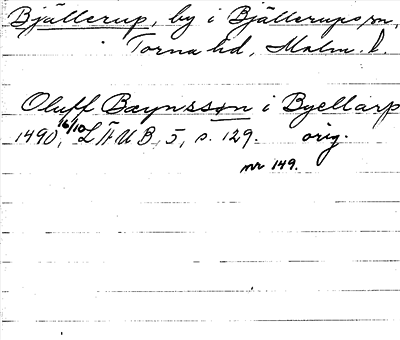 Bjällerup, by i Bjällerups sn,
Torna hd, Malm. l.
Oluff Bæynsson i Byellarp
1490, 16/10 LÄUB, 5, s. 129. orig.
nr 149.